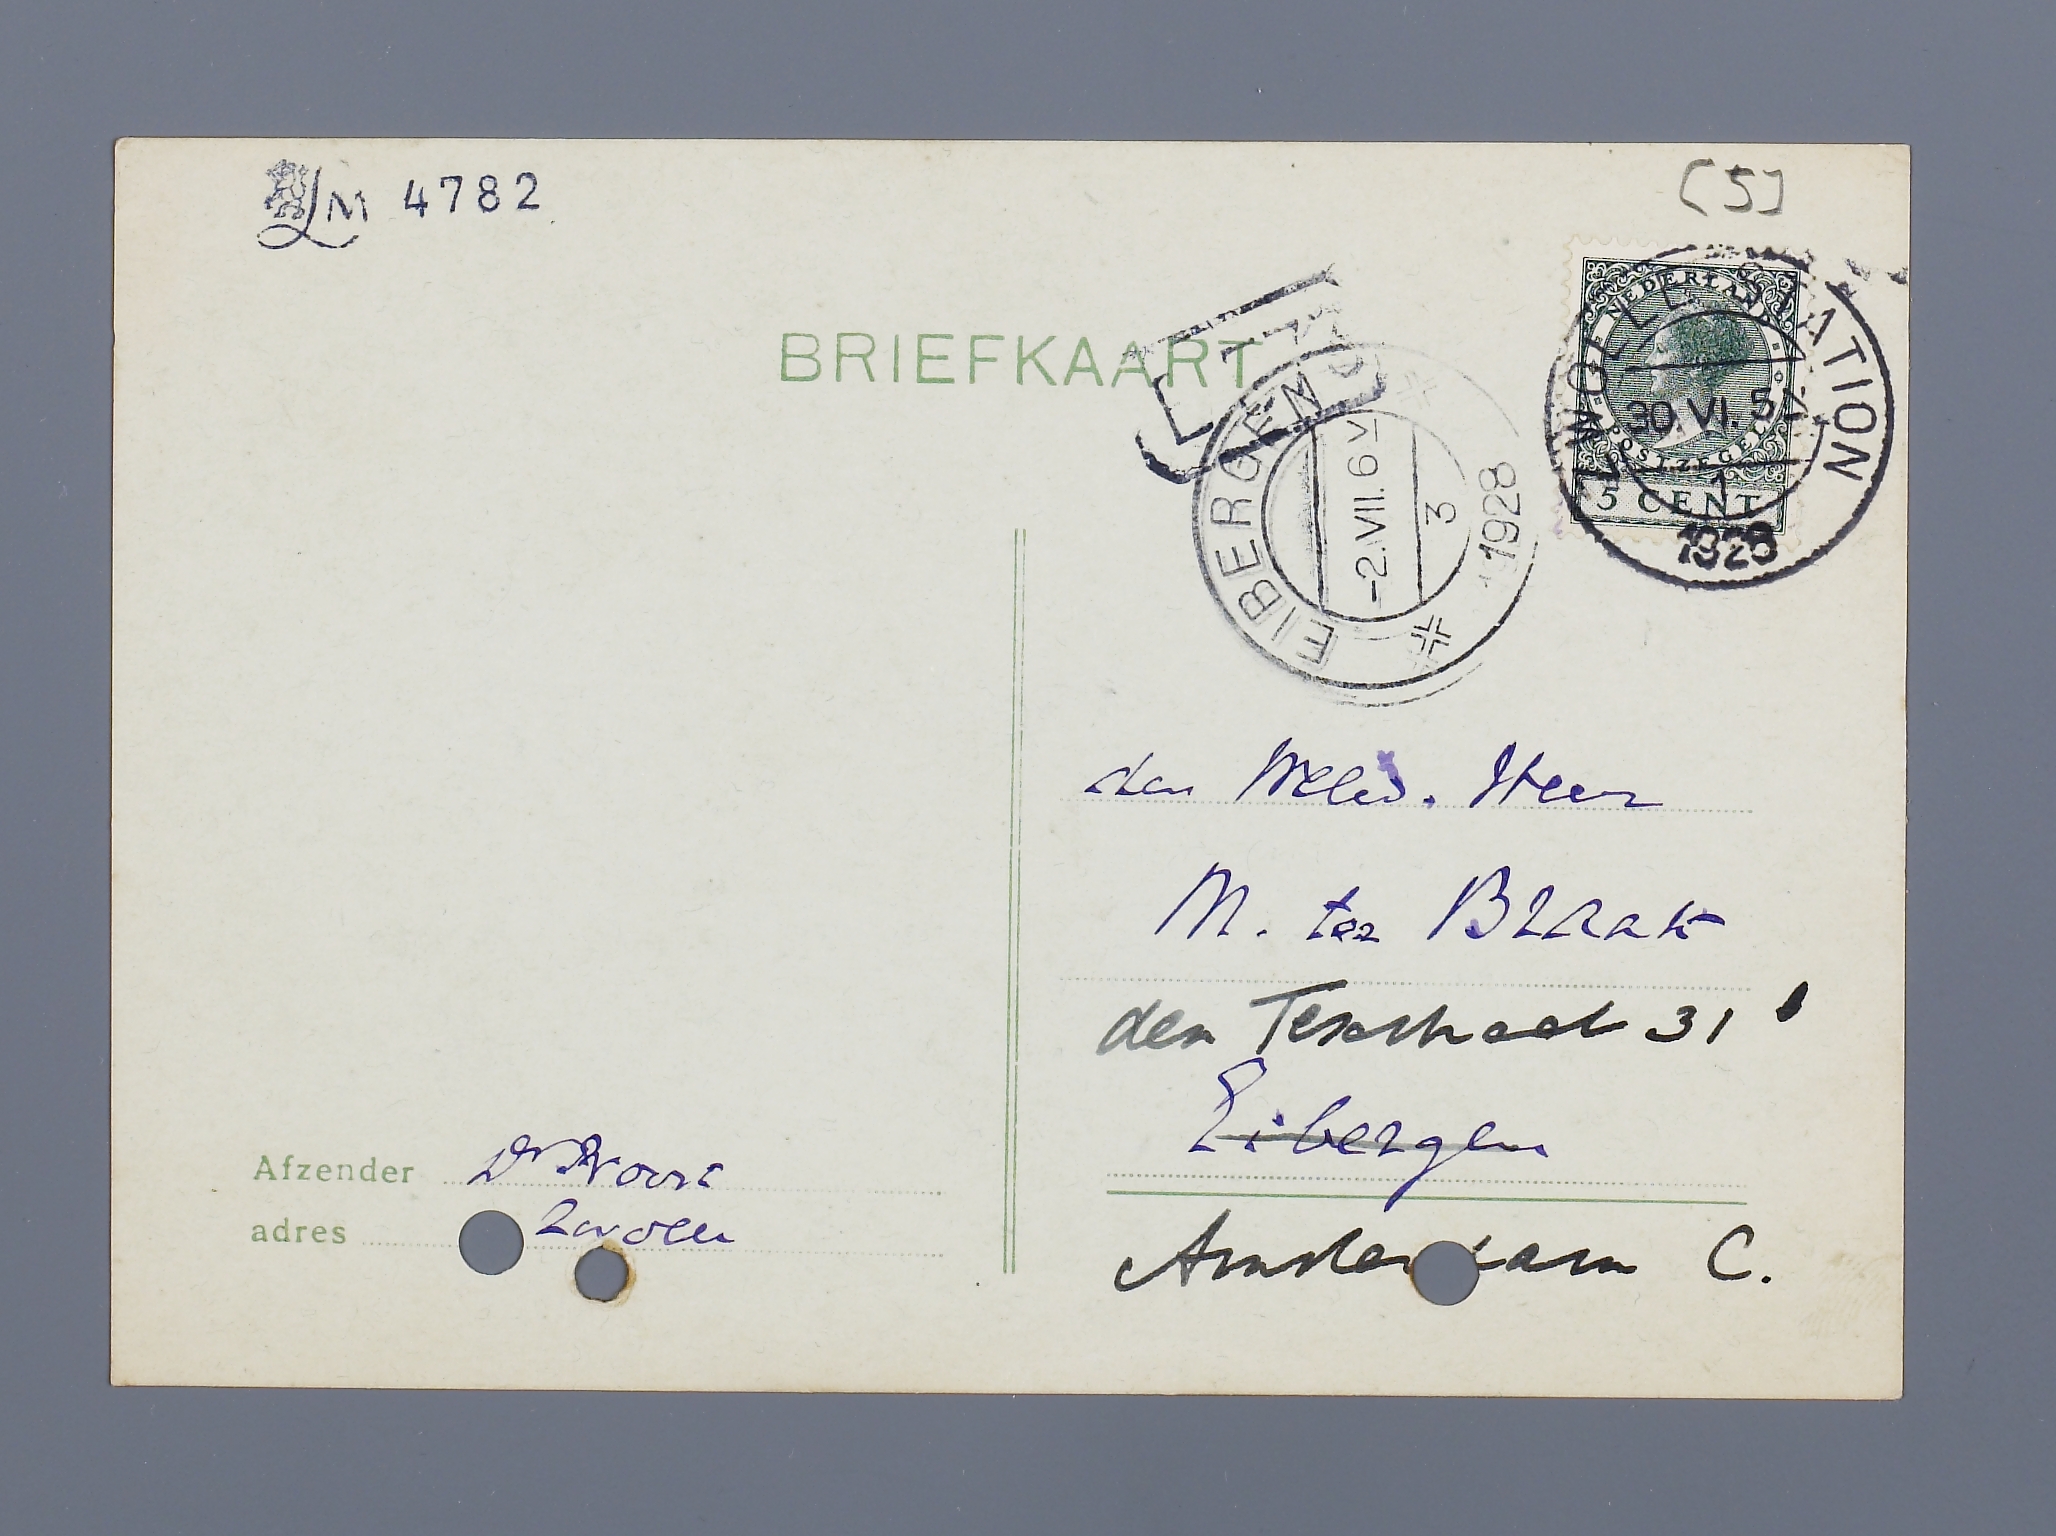 LM 4782
[5]
BRIEFKAART
NEDERLAND
POSTZEGEL
5 CENT
ZWOLLE STATION
30.VI.5
1
1928
EIBERGEN
-2.VII.6V
3
1928
den Heer
M. ter Braak
den Texstraat 31
Eibergen
Amsterdam C.
Afzender Dr
adres Zwolle